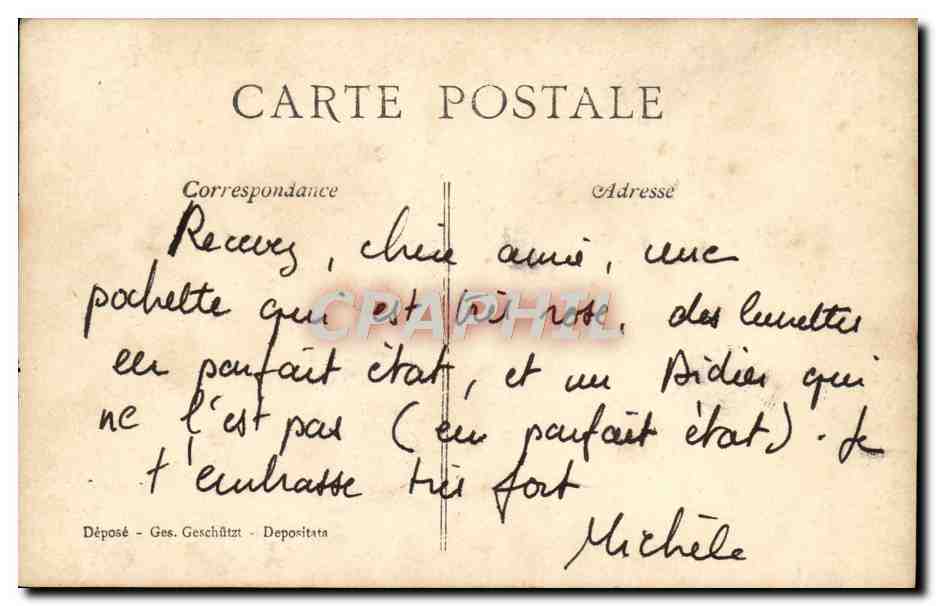 CARTE POSTALE
Correspondance
Adresse
Recevez, chère amie, une
pochette qui est très rose, des lunettes
en parfait état, et un Didier qui
ne l'est pas (en parfait état). Je
t'embrasse très fort
Michèle
Déposé - Ges. Geschützt - Depositata
CPAPHIL